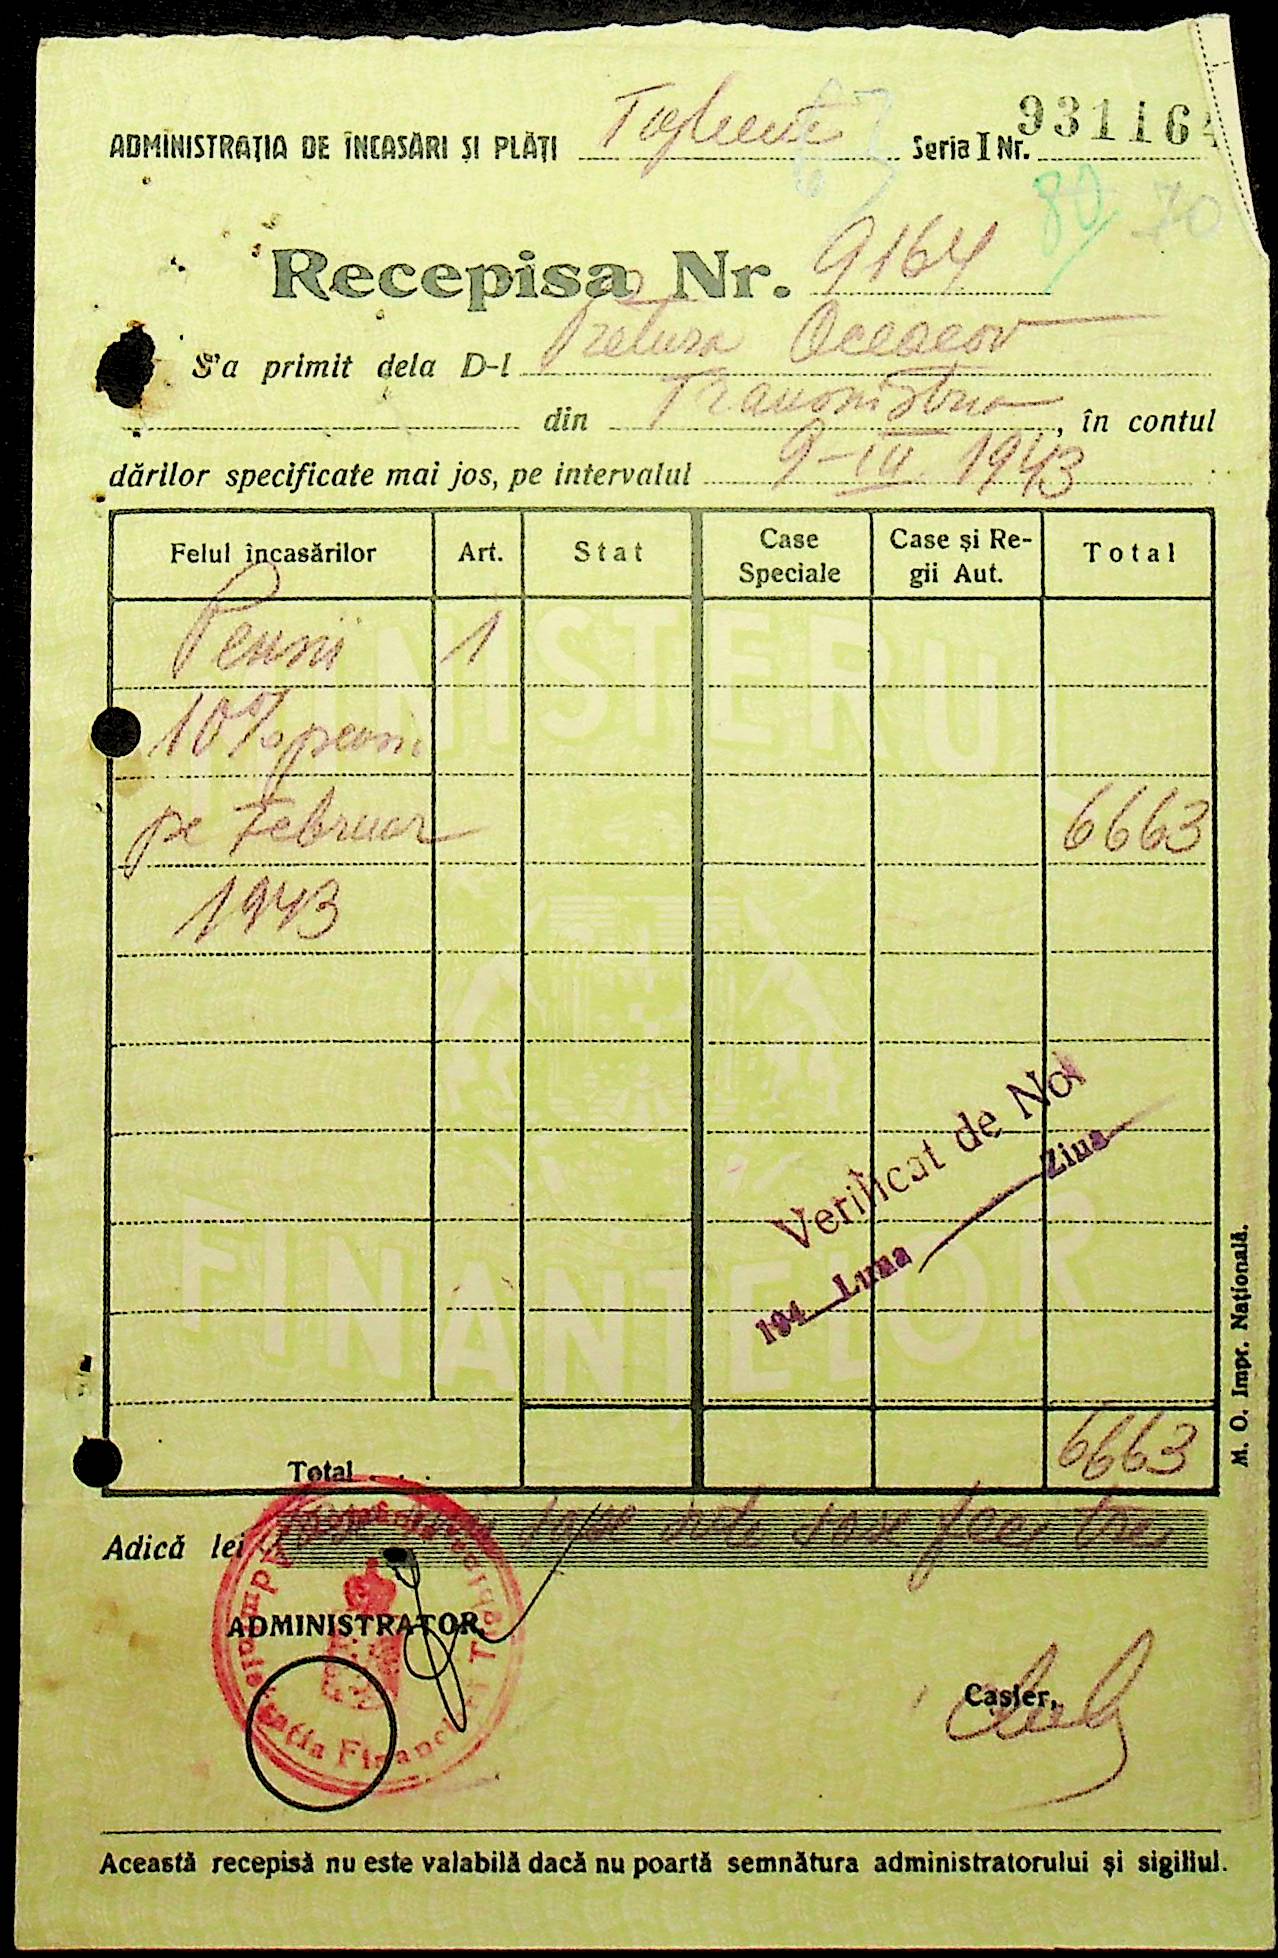 ADMINISTRAȚIA DE ÎNCASĂRI ȘI PLĂȚI Tighina Seria I Nr. 931164
80 70
Recepisa Nr. 9164
S'a primit dela D-l Pretura Oceacov
din Transnistria, în contul
dărilor specificate mai jos, pe intervalul 9-III 1943
Felul încasărilor Art. Stat Case Speciale Case și Regii Aut. Total
Pensii 1
10% pensii
pe Februar 6663
1943
MINISTERUL
FINANȚELOR
Verificat de Noi
194 Luna Ziua
Total . . . 6663
Adică lei șase mii șase sute șase zeci trei
ADMINISTRATOR,
Casier,
Această recepisă nu este valabilă dacă nu poartă semnătura administratorului și sigiliul.
M. O. Impr. Națională.